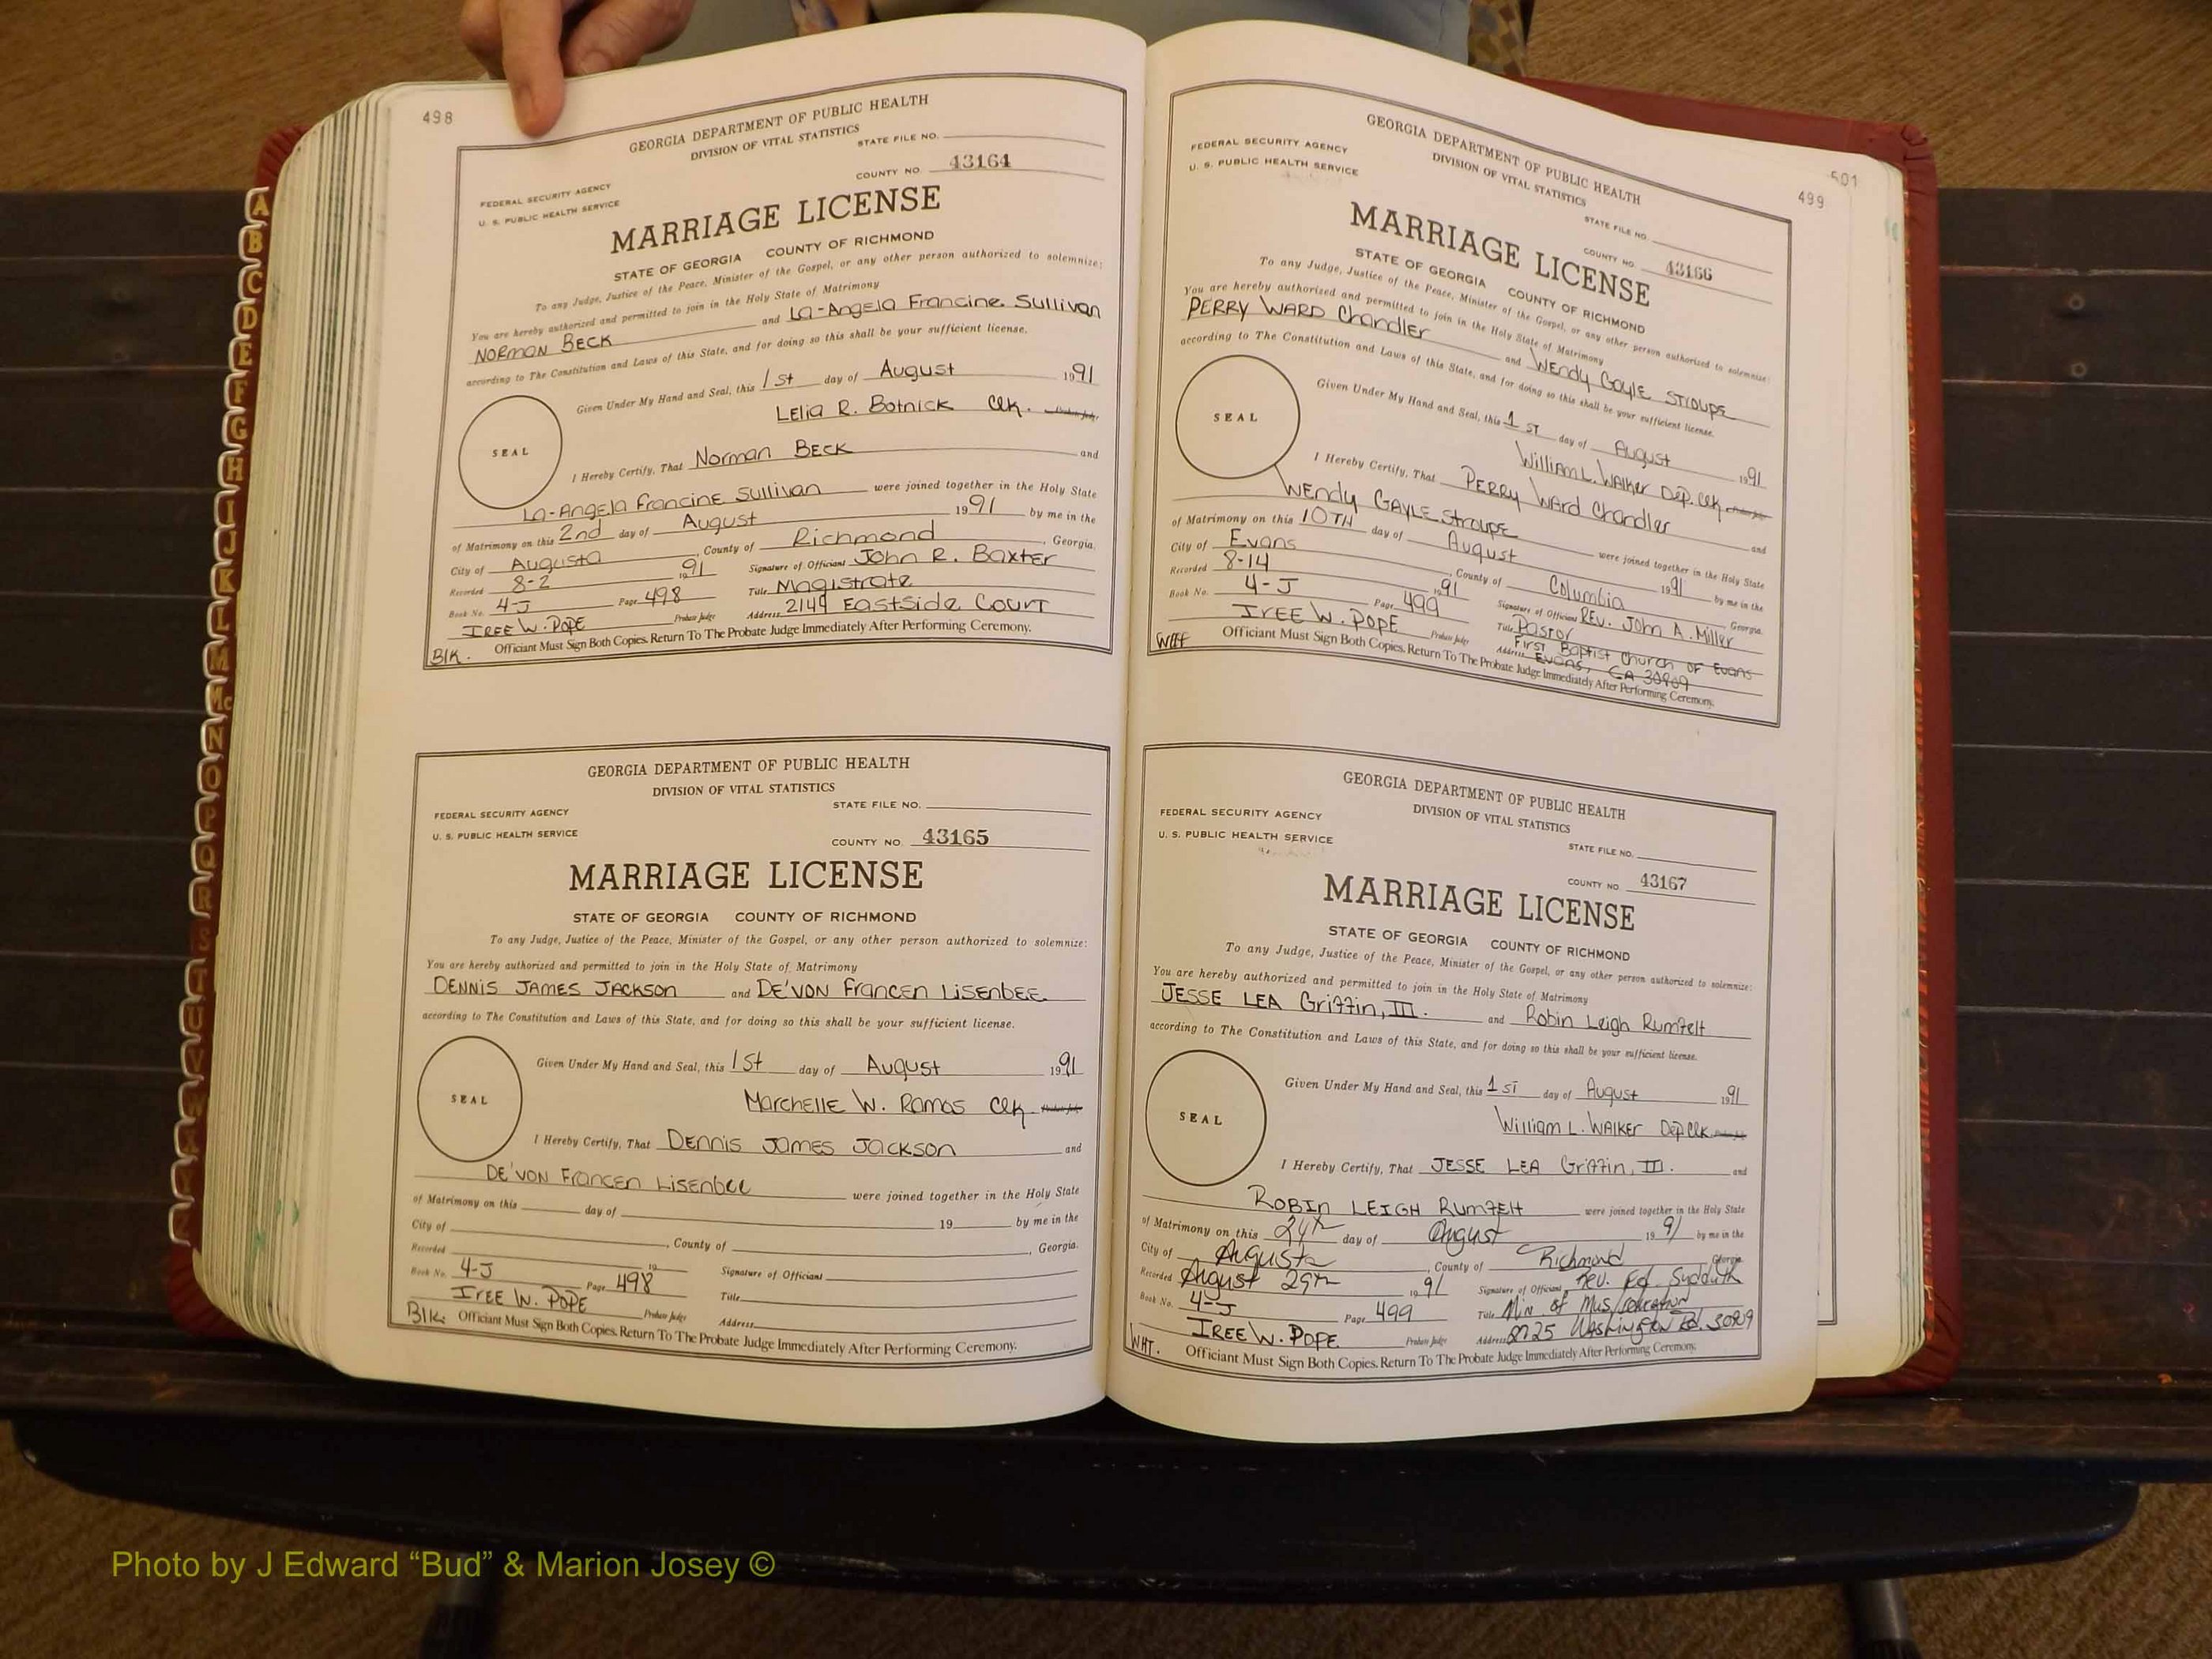 498
GEORGIA DEPARTMENT OF PUBLIC HEALTH
DIVISION OF VITAL STATISTICS
STATE FILE NO.
FEDERAL SECURITY AGENCY
U. S. PUBLIC HEALTH SERVICE
COUNTY NO. 43164
MARRIAGE LICENSE
STATE OF GEORGIA COUNTY OF RICHMOND
To any Judge, Justice of the Peace, Minister of the Gospel, or any other person authorized to solemnize:
You are hereby authorized and permitted to join in the Holy State of Matrimony
NORMAN BECK and LA-ANGELA FRANCINE SULLIVAN
according to The Constitution and Laws of this State, and for doing so this shall be your sufficient license.
Given Under My Hand and Seal, this 1st day of August 1991
LELIA R. Botnick Clk. Probate Judge
SEAL
I Hereby Certify, That Norman BECK and
LA-Angela Francine Sullivan were joined together in the Holy State
of Matrimony on this 2nd day of August 1991 by me in the
City of Augusta, County of Richmond, Georgia.
Recorded 8-2 1991 Signature of Officiant John R. Baxter
Book No. 4-J Page 498 Title Magistrate
IREE W. POPE Probate Judge Address 2149 Eastside Court
Blk. Officiant Must Sign Both Copies. Return To The Probate Judge Immediately After Performing Ceremony.
GEORGIA DEPARTMENT OF PUBLIC HEALTH
DIVISION OF VITAL STATISTICS
FEDERAL SECURITY AGENCY STATE FILE NO.
U. S. PUBLIC HEALTH SERVICE
COUNTY NO. 43165
MARRIAGE LICENSE
STATE OF GEORGIA COUNTY OF RICHMOND
To any Judge, Justice of the Peace, Minister of the Gospel, or any other person authorized to solemnize:
You are hereby authorized and permitted to join in the Holy State of Matrimony
DENNIS JAMES JACKSON and DE'VON Francen LISENBEE
according to The Constitution and Laws of this State, and for doing so this shall be your sufficient license.
Given Under My Hand and Seal, this 1st day of August 1991
Marchelle W. Ramos Clk Probate Judge
SEAL
I Hereby Certify, That DENNIS JAMES JACKSON and
DE'VON Francen Lisenbee were joined together in the Holy State
of Matrimony on this day of 19 by me in the
City of , County of , Georgia.
Recorded 19 Signature of Officiant
Book No. 4-J Page 498 Title
IREE W. POPE Probate Judge Address
Blk. Officiant Must Sign Both Copies. Return To The Probate Judge Immediately After Performing Ceremony.
501
499
GEORGIA DEPARTMENT OF PUBLIC HEALTH
DIVISION OF VITAL STATISTICS
FEDERAL SECURITY AGENCY
U. S. PUBLIC HEALTH SERVICE
STATE FILE NO.
COUNTY NO. 43166
MARRIAGE LICENSE
STATE OF GEORGIA COUNTY OF RICHMOND
To any Judge, Justice of the Peace, Minister of the Gospel, or any other person authorized to solemnize:
You are hereby authorized and permitted to join in the Holy State of Matrimony
PERRY WARD Chandler and WENDY Gayle STROUPE
according to The Constitution and Laws of this State, and for doing so this shall be your sufficient license.
Given Under My Hand and Seal, this 1ST day of August 1991
William L. WALKER Dep. Clk. Probate Judge
SEAL
I Hereby Certify, That PERRY WARD Chandler and
WENDY GAYLE STROUPE were joined together in the Holy State
of Matrimony on this 10TH day of August 1991 by me in the
City of Evans, County of Columbia Georgia.
Recorded 8-14 1991 Signature of Officiant REV. John A. Miller
Book No. 4-J Page 499 Title Pastor
IREE W. POPE Probate Judge Address First Baptist Church OF Evans
Evans, GA 30809
Officiant Must Sign Both Copies. Return To The Probate Judge Immediately After Performing Ceremony.
GEORGIA DEPARTMENT OF PUBLIC HEALTH
DIVISION OF VITAL STATISTICS
FEDERAL SECURITY AGENCY
U. S. PUBLIC HEALTH SERVICE
STATE FILE NO.
COUNTY NO. 43167
MARRIAGE LICENSE
STATE OF GEORGIA COUNTY OF RICHMOND
To any Judge, Justice of the Peace, Minister of the Gospel, or any other person authorized to solemnize:
You are hereby authorized and permitted to join in the Holy State of Matrimony
JESSE LEA Griffin, III. and Robin Leigh Rumfelt
according to The Constitution and Laws of this State, and for doing so this shall be your sufficient license.
Given Under My Hand and Seal, this 1ST day of August 1991
William L. WALKER Dep Clk Probate Judge
SEAL
I Hereby Certify, That JESSE LEA Griffin, III. and
ROBIN LEIGH RUMFELT were joined together in the Holy State
of Matrimony on this 24th day of August 1991 by me in the
City of Augusta, County of Richmond Georgia
Recorded August 29th 1991 Signature of Officiant Rev. Ed. Sudduth
Book No. 4-J Page 499 Title Min of Mus/education
IREE W. POPE Probate Judge Address Washington Rd. 30909
WHT. Officiant Must Sign Both Copies. Return To The Probate Judge Immediately After Performing Ceremony.
A
B
C
D
E
F
G
H
I
J
K
L
M
Mc
N
O
P
Q
R
S
T
U
V
W
Photo by J Edward “Bud” & Marion Josey ©